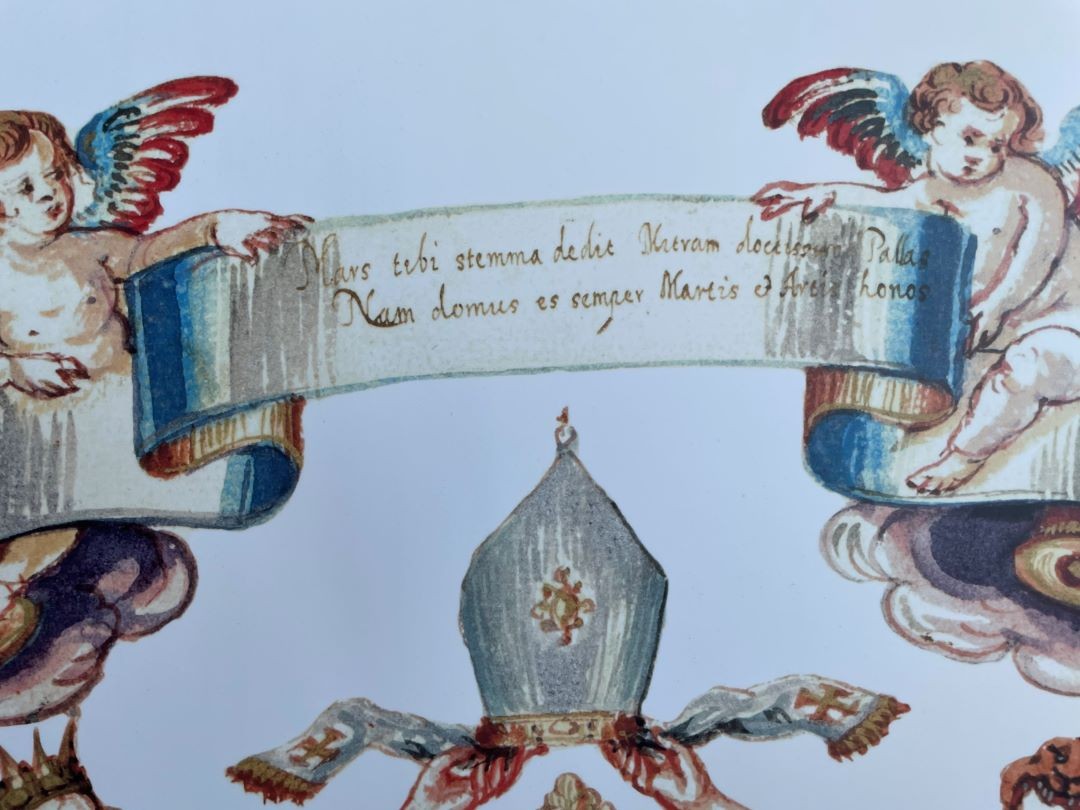 Mars tibi stemma dedit Mitram Pallas
Nam domus es semper Martis & Artis honos